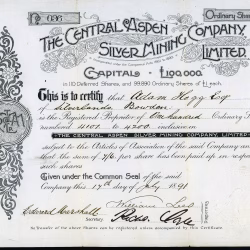 No 636
Ordinary Shares
THE CENTRAL ASPEN
SILVER MINING COMPANY,
LIMITED.
CAPITAL £100,000
in 110 Deferred Shares, and 99,890 Ordinary Shares of £1 each.
This is to certify that Adam Hogg Esq
Bowdon
is the Registered Proprietor of One hundred Ordinary
numbered 4101 to 4200 inclusive in
THE CENTRAL ASPEN SILVER MINING COMPANY, LIMITED
subject to the Articles of Association of the said Company and
that the sum of 7/6 per share has been paid up in respect
such shares
Given under the Common Seal of the said
Company this 17th day of July 1891
Edward Marshall
Secretary
William
No Transfer of the above Shares can be registered unless accompanied by this Certificate